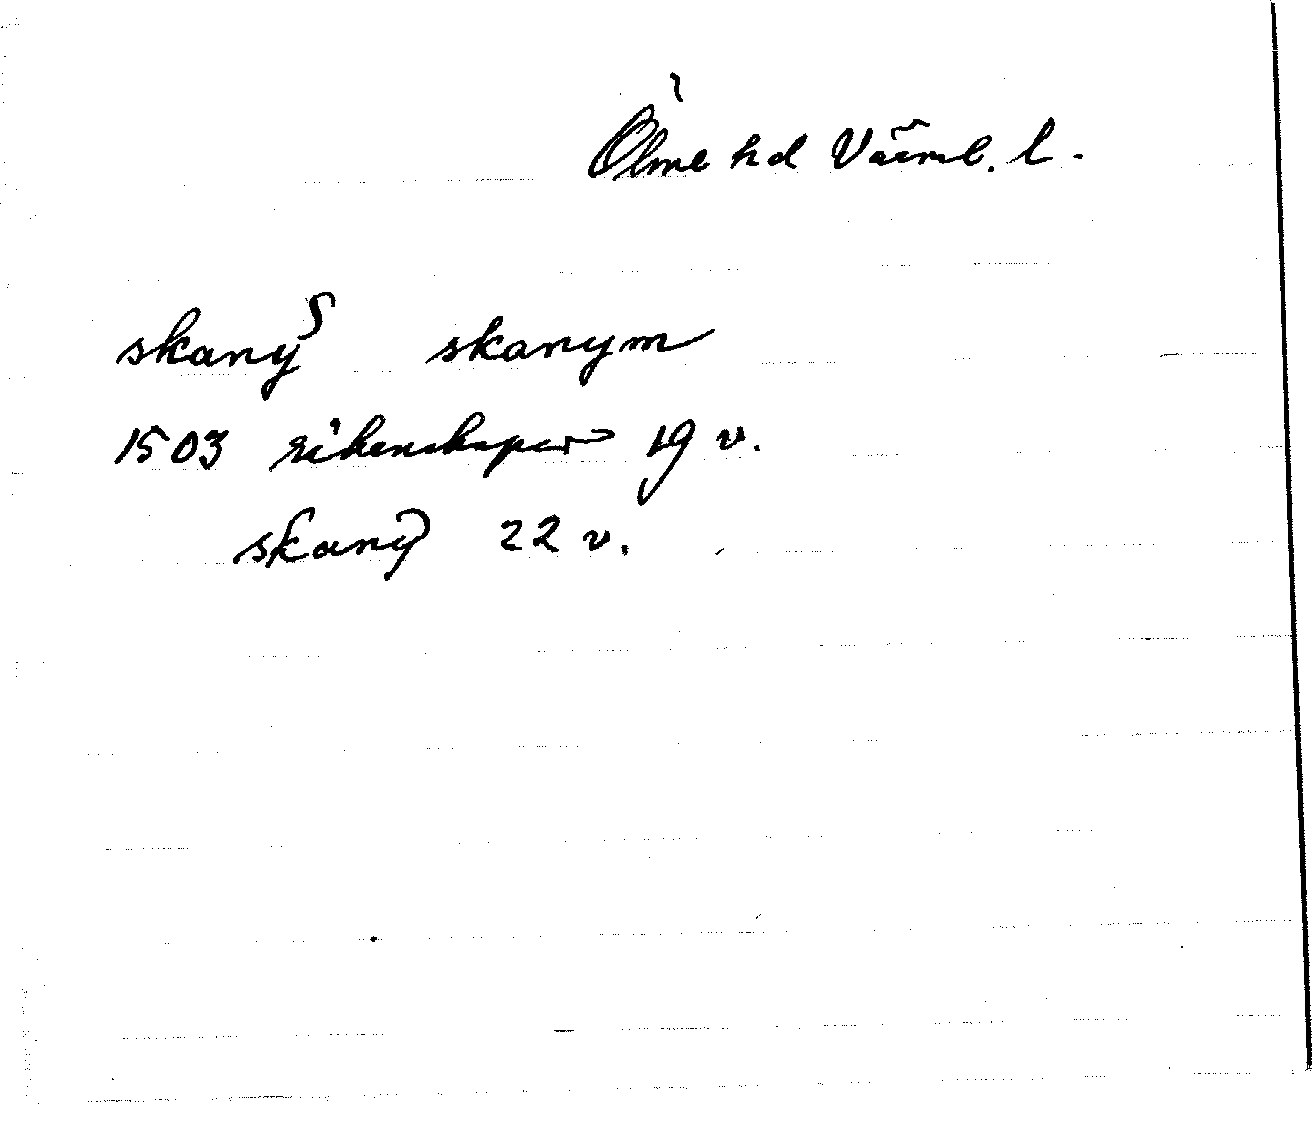 Ölme hd Värml. l.
skanyͦ skanym
1503 räkenskaper 19 v.
skanyͦ 22 v.